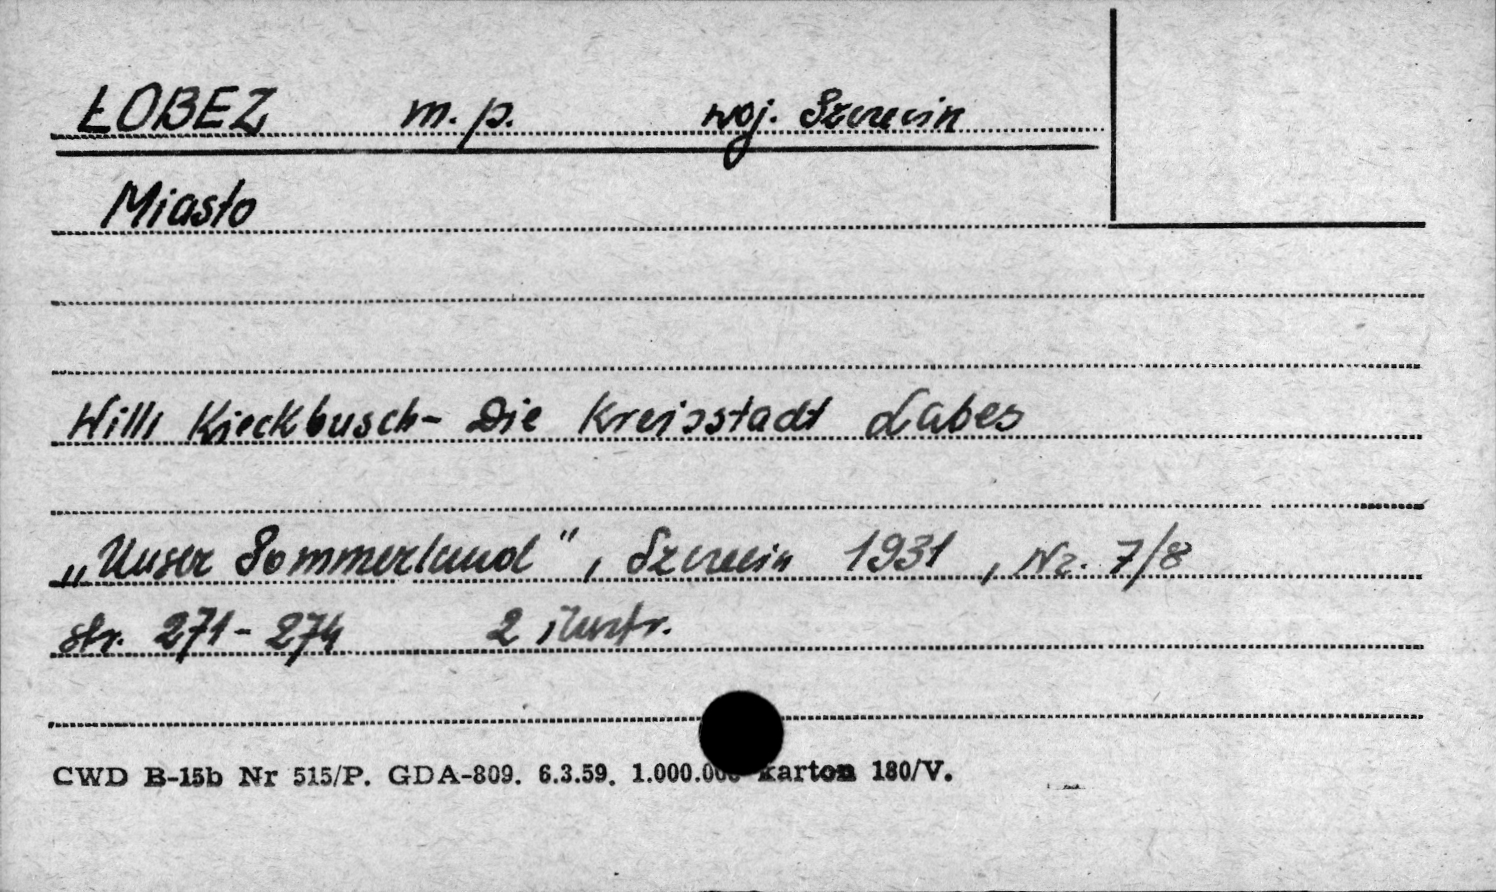 ŁOBEZ m.p. woj. Szczecin
Miasto
Willi Kieckbusch - Die Kreisstadt Labes
„Unser Pommerland", Szczecin 1931, Nr. 7/8
str. 271-274 2 ilustr.
CWD B-15b Nr 515/P. GDA-809. 6.3.59. 1.000.000 karton 180/V.